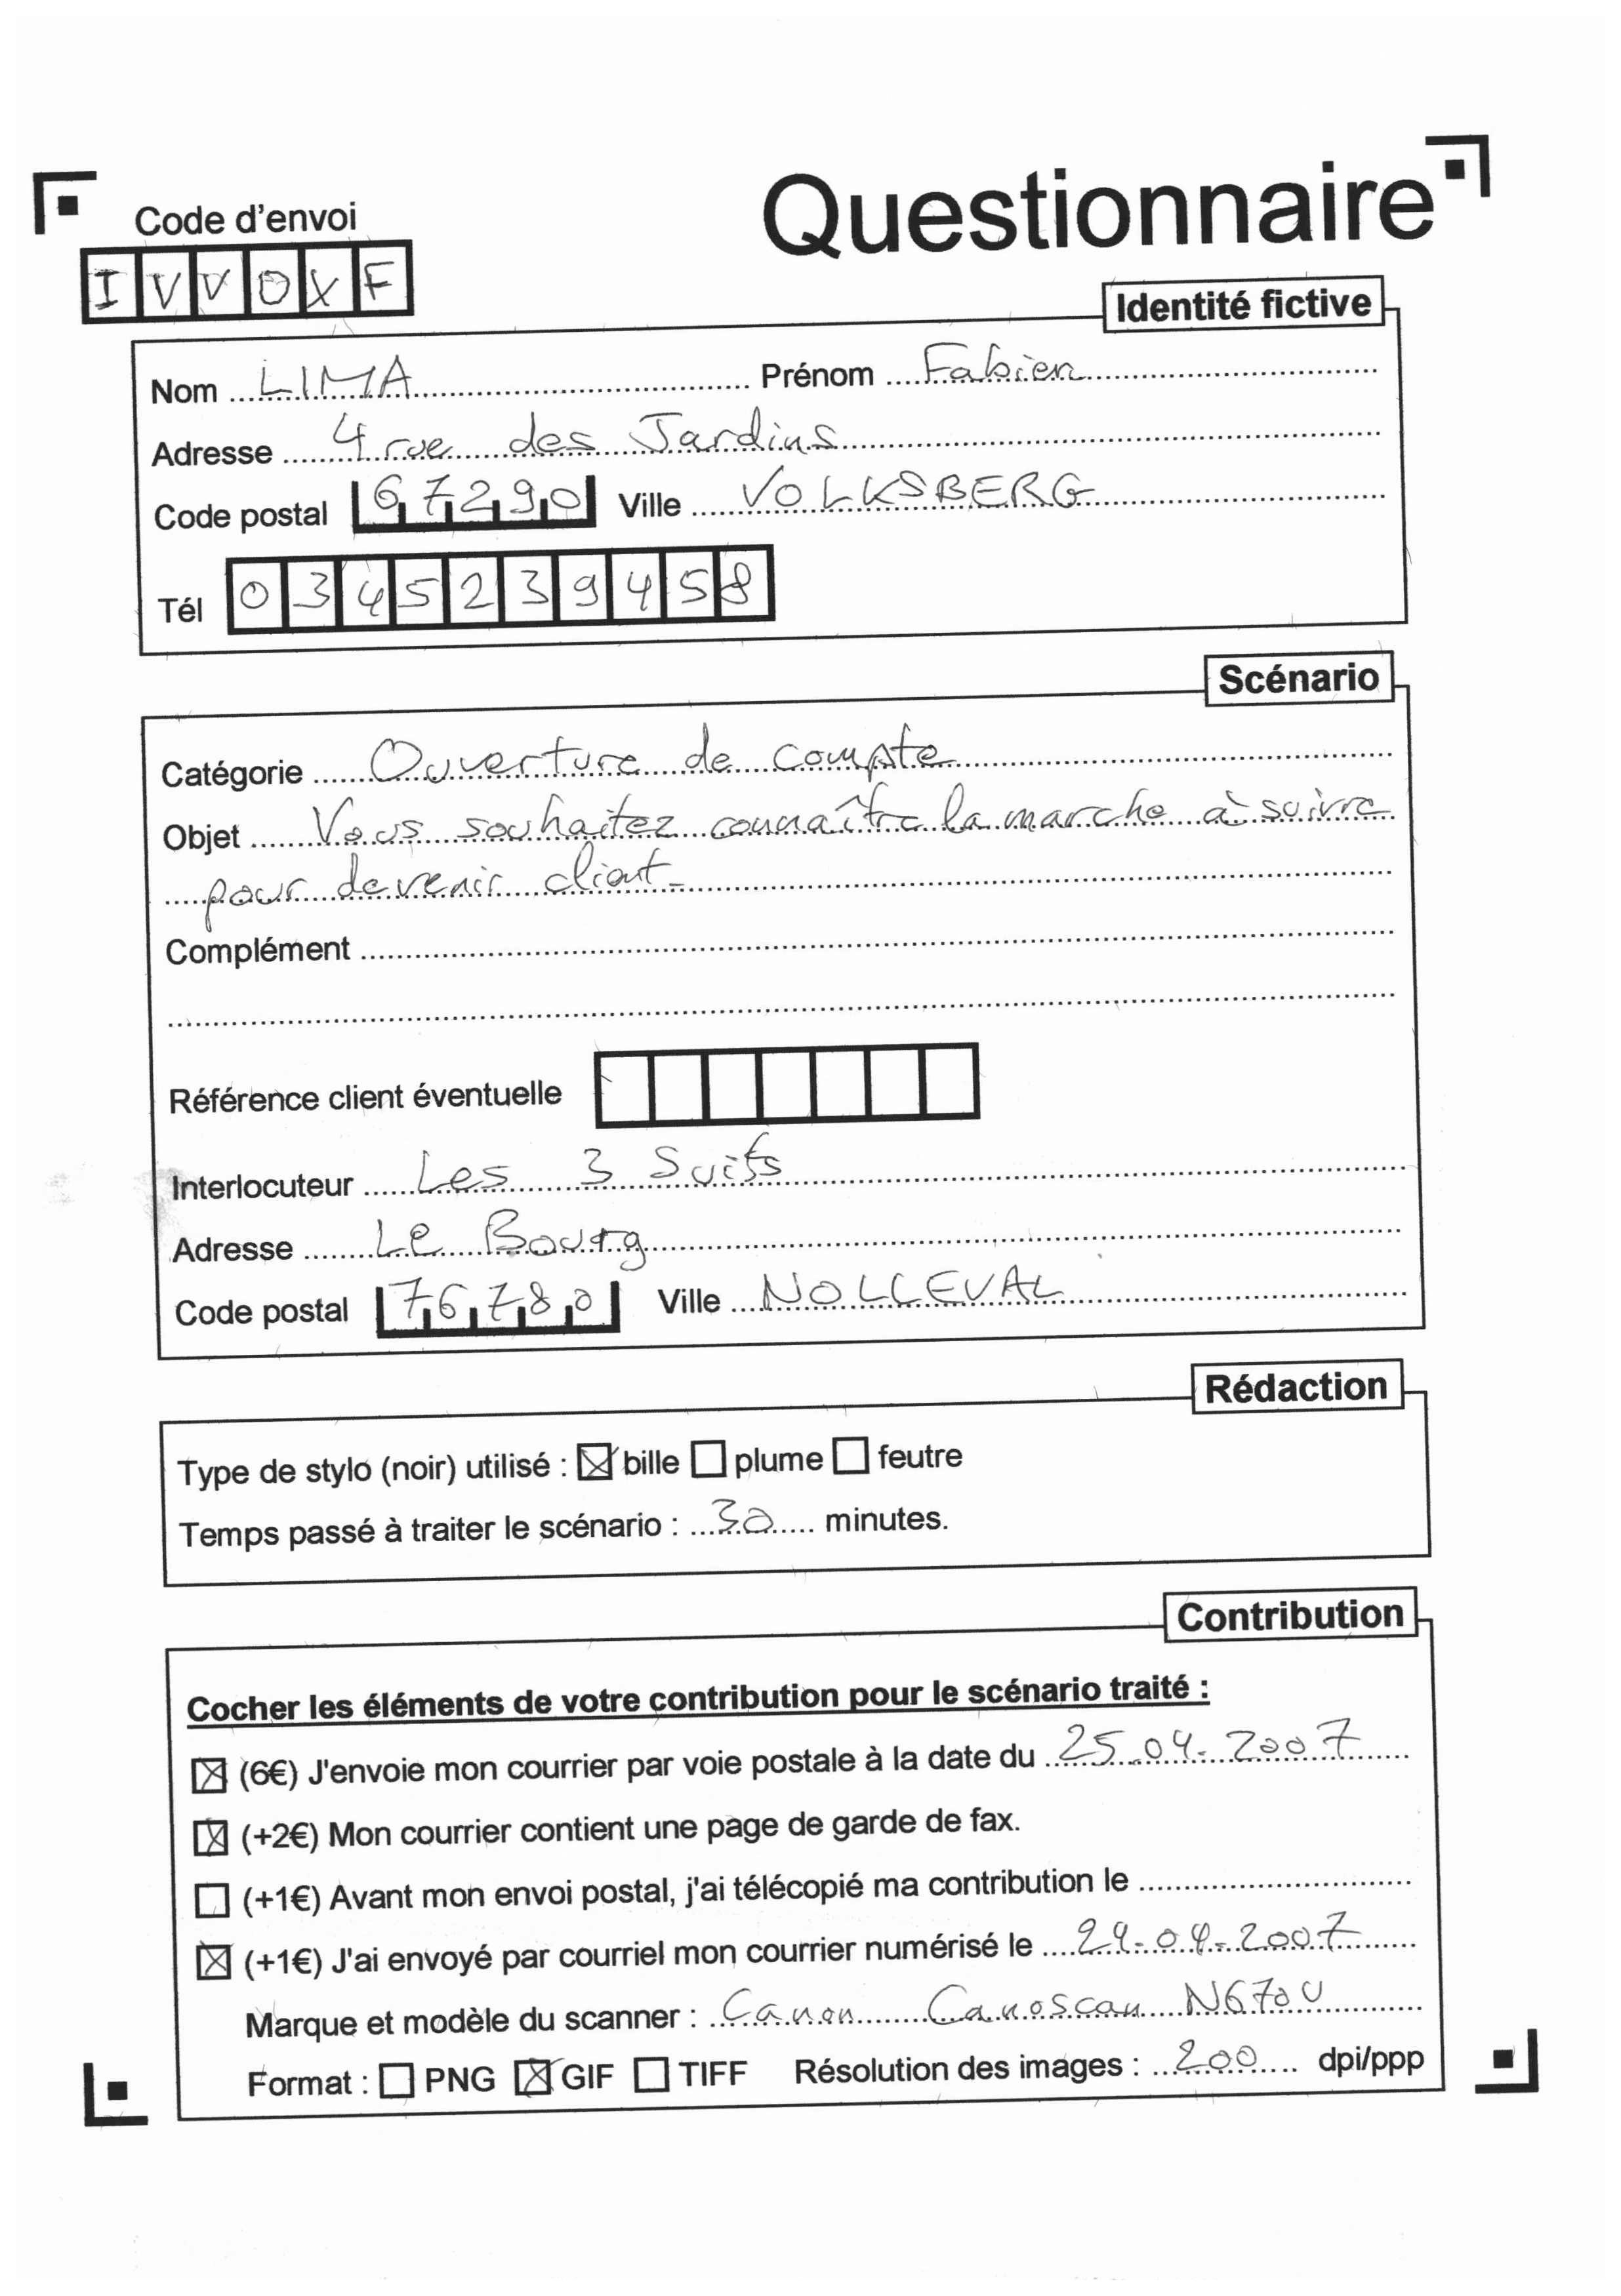 Questionnaire
Code d'envoi
IVVOXF
Identité fictive
Nom LIMA Prénom Fabien
Adresse 4 rue des Jardins
Code postal 67290 Ville VOLKSBERG
Tél 0345239458
Scénario
Catégorie Ouverture de compte
Objet Vous souhaitez connaître la marche à suivre
pour devenir client.
Complément
Référence client éventuelle
Interlocuteur Les 3 Suits
Adresse Le Bourg
Code postal 76780 Ville NOLLEVAL
Rédaction
Type de stylo (noir) utilisé : bille plume feutre
Temps passé à traiter le scénario : 30 minutes.
Contribution
Cocher les éléments de votre contribution pour le scénario traité :
(6€) J'envoie mon courrier par voie postale à la date du 25.04.2007
(+2€) Mon courrier contient une page de garde de fax.
(+1€) Avant mon envoi postal, j'ai télécopié ma contribution le
(+1€) J'ai envoyé par courriel mon courrier numérisé le 24-04-2007
Marque et modèle du scanner : Canon Canoscan N670U
Format : PNG GIF TIFF Résolution des images : 200 dpi/ppp